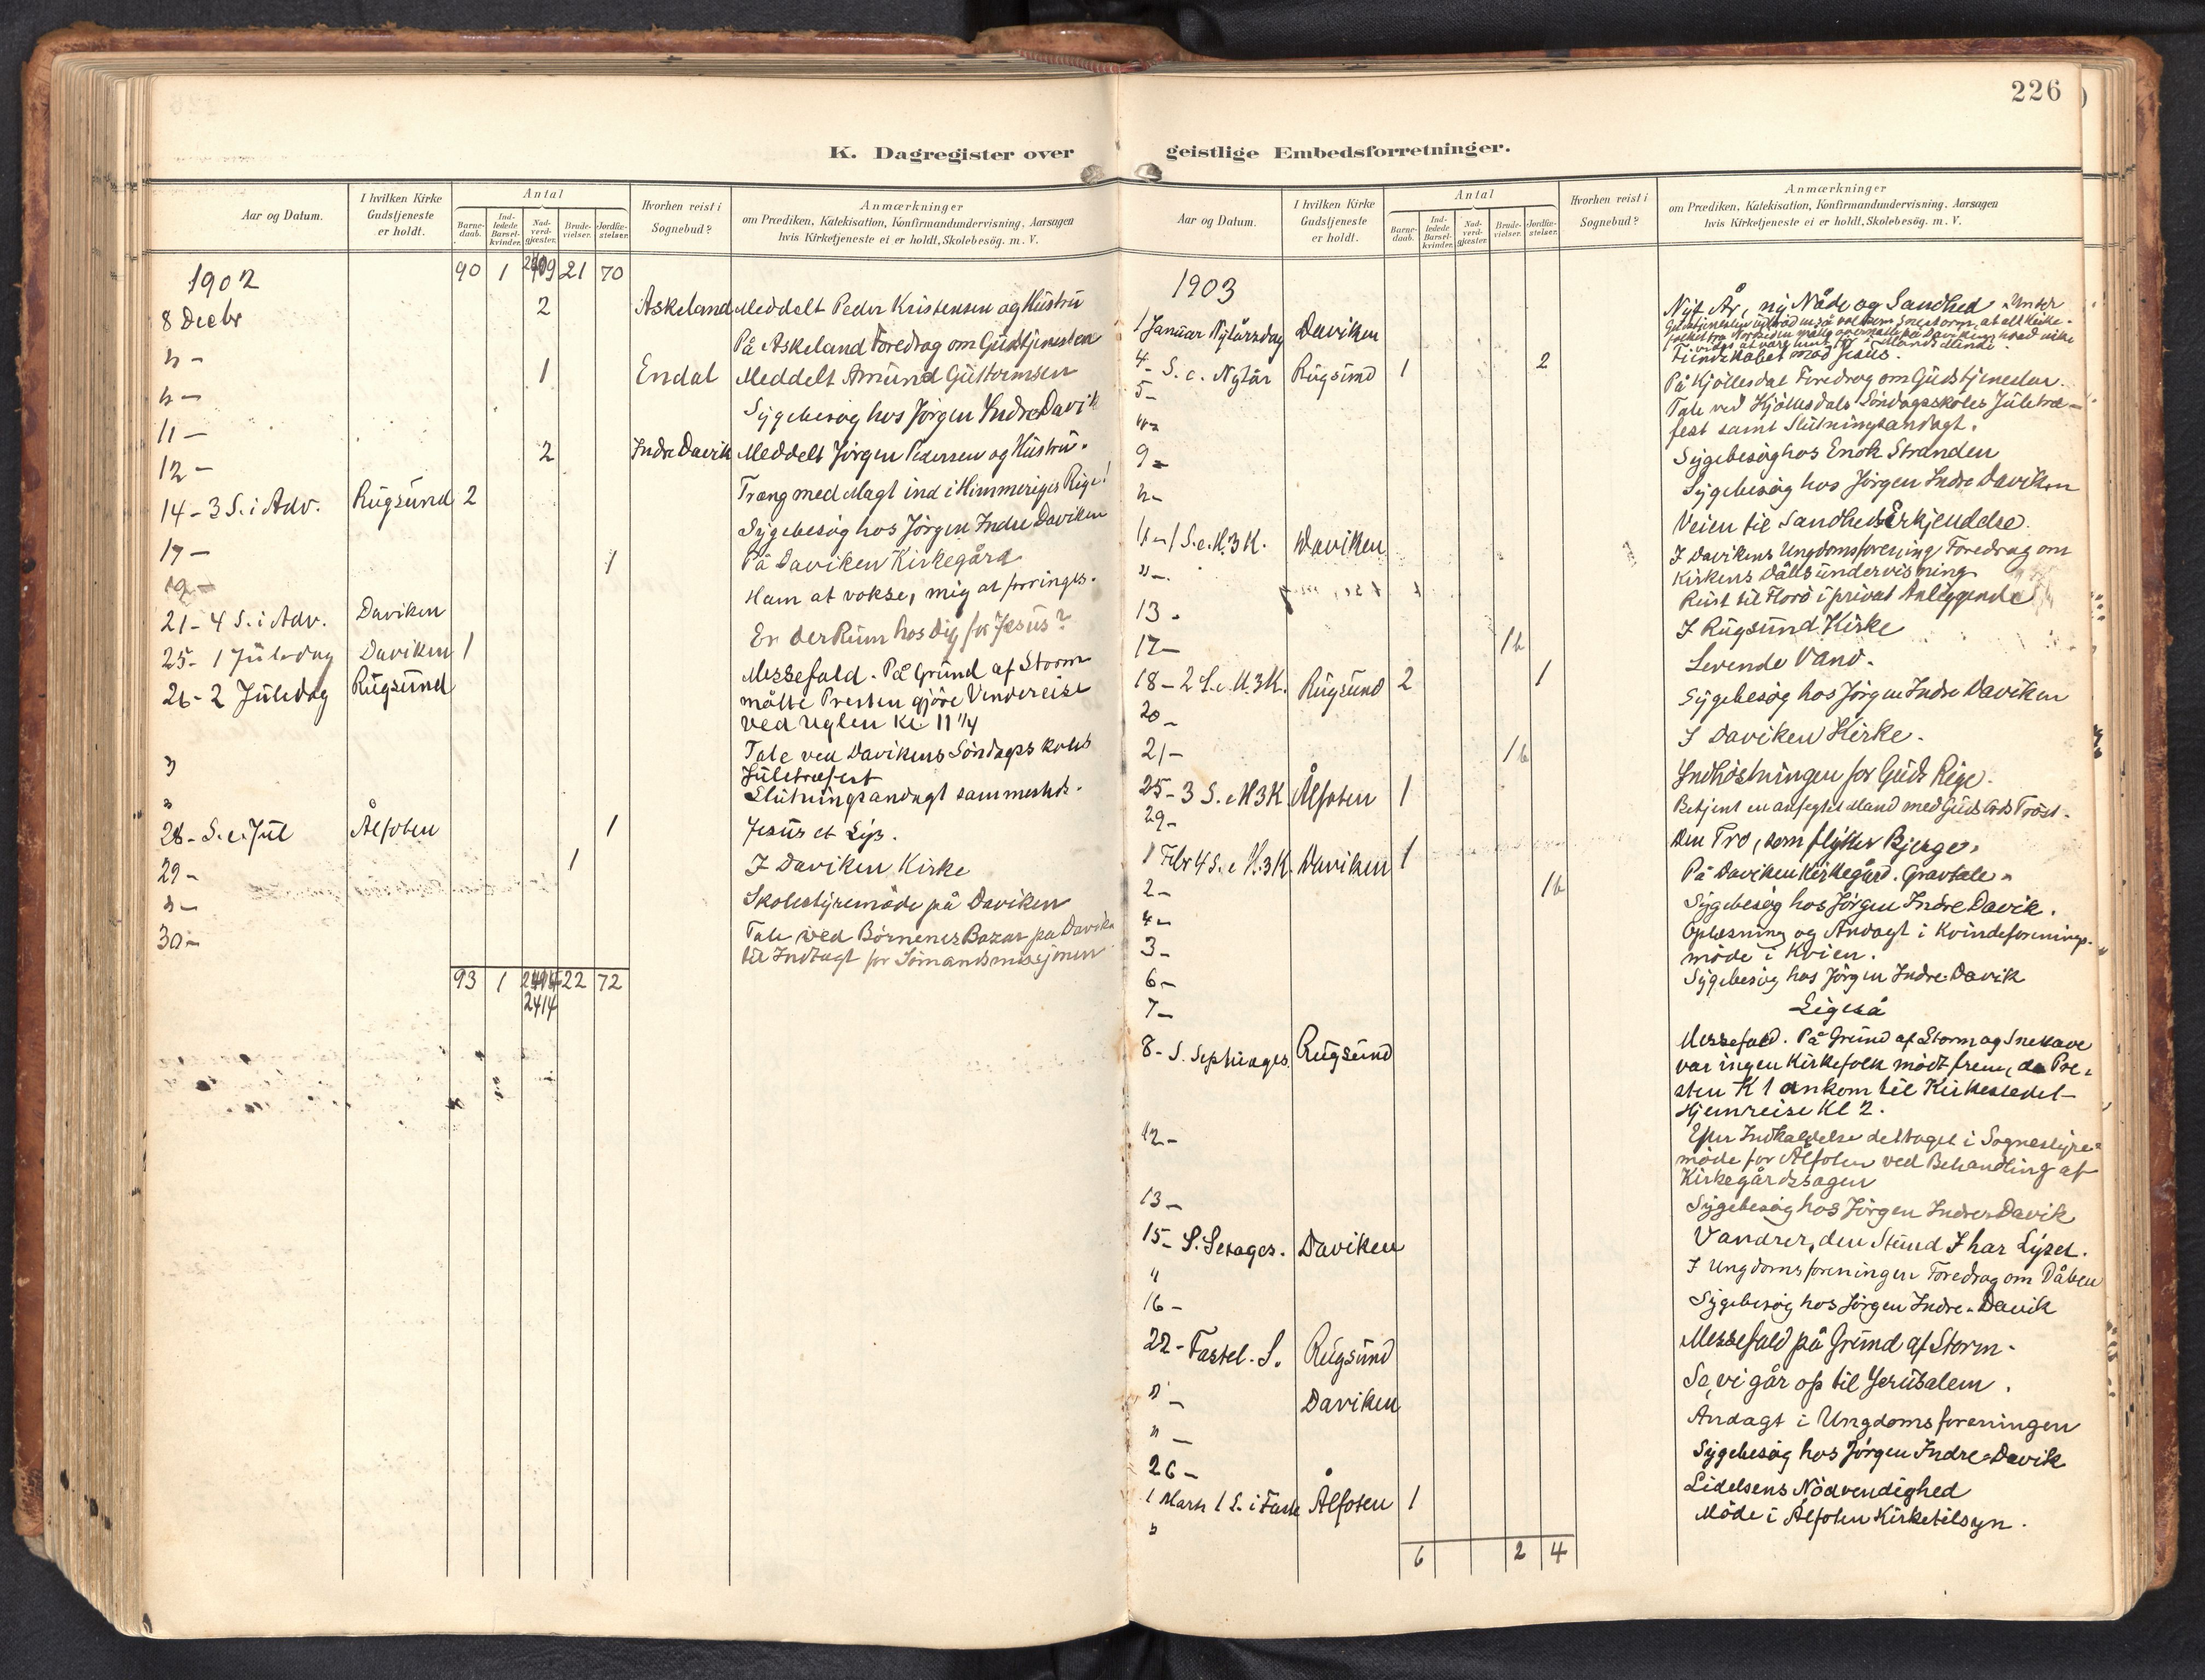 226
K. Dagregister over geistlige Embedsforretninger.
Aar og Datum. I hvilken Kirke Gudstjeneste er holdt. Antal Barne-daab. Ind-ledede Barsel-kvinder. Nad-verd-gjester. Brude-vielser. Jordfæ-stelser. Hvorhen reist i Sognebud? Anmærkninger
om Prædiken, Katekisation, Konfirmandundervisning, Aarsagen
hvis Kirketjeneste ei er holdt, Skolebesög. m. V.
1902 90 1 21 70
8 Decbr 2 Askeland Meddelt Peder Kristensen og Hustru
På Askeland Foredrag om Gudstjenesten
1 Endal Meddelt Amund Guttormsen
11 — Sygebesøg hos Jørgen Indre Davik
12 — 2 Indre Davik Meddelt Jörgen Pedersen og Hustru.
14 - 3 S. i Adv. Rugsund 2 Træng med Magt ind i Himmeriges Rige!
17 — Sygebesøg hos Jörgen Indre Daviken
19 — 1 På Daviken Kirkegård
21 - 4 S. i Adv. Daviken Ham at vokse, mig at forringes.
25 - 1 Juledag Daviken 1 Er der Rum hos dig for Jesus?
26 - 2 Juledag Rugsund Messefald. På Grund af Storm
måtte Presten gjöre Vendereise
ved Uglen Kl. 11 1/4
" Tale ved Davikens Söndagsskoles
Juletræfest
" Slutningsandagt sammesteds.
28 - S. e. Jul Ålfoten 1 Jesus et Lys.
29 - 1 I Daviken Kirke
" - Skolestyremöde på Daviken
30 - Tale ved Børnenes Bazar på Davik
til Indtægt for Sömandsmissjonen
93 1 22 72
2414
Aar og Datum. I hvilken Kirke Gudstjeneste er holdt. Antal Barne-daab. Ind-ledede Barsel-kvinder. Nad-verd-gjester. Brude-vielser. Jordfæ-stelser. Hvorhen reist i Sognebud? Anmærkninger
om Prædiken, Katekisation, Konfirmandundervisning, Aarsagen
hvis Kirketjeneste ei er holdt, Skolebesög. m. V.
1903
1 Januar Nytårsdag Daviken Nyt År, ny Nåde og Sandhed. Under
4 - S. e. Nytår Rugsund 1 2 Fiendskabet mod Jesus.
5 — På Hjöllesdal Foredrag om Gudstjenesten.
Tale ved Hjöllesdals Söndagsskoles Juletræ-
fest samt Slutningsandagt.
9 — Sygebesøg hos Enok Stranden
" — Sygebesøg hos Jörgen Indre Daviken
11 - 1 S. e. H. 3 K. Daviken Veien til Sandheds Erkjendelse.
" — I Davikens Ungdomsforening Foredrag om
Kirkens Dåbsundervisning
13 - Reist til Florö i privat Anliggende
17 — 1 b I Rugsund Kirke
18 - 2 S. e. H. 3 K. Rugsund 2 1 Levende Vand.
20 — Sygebesøg hos Jörgen Indre Daviken
21 — 1 b I Daviken Kirke.
25 - 3 S. e H 3 K Ålfoten 1 Indhöstningen for Guds Rige.
29 — Betjent en anfegtet Mand med Guds Ords Tröst.
1 Febr 4 S. e H. 3 K. Daviken 1 Den Tro, som flytter Bjerge.
2 — 1 b På Daviken Kirkegård. Gravtale.
4 — Sygebesøg hos Jörgen Indre Davik.
3 — Oplæsning og Andagt i Kvindeforenings-
möde i Kvien.
6 — Sygebesøg hos Jörgen Indre Davik
7 — Ligeså
8 - S. Septuages. Rugsund Messefald. På Grund af Storm og Snekave
var ingen Kirkefolk mödt frem, da Pre-
sten Kl 1 ankom til Kirkestedet
Hjemreise Kl 2.
12 — Efter Indkaldelse deltaget i Sognestyre-
möde for Ålfoten ved Behandling af
Kirkegårdssagen
13 — Sygebesøg hos Jörgen Indre Davik
15 - S. Sexages. Daviken Vandrer, den Stund I har Lyset.
" I Ungdomsforeningen Foredrag om Dåben
16 — Sygebesøg hos Jörgen Indre Davik
22 - Fastel. S. Rugsund Messefald på Grund af Storm.
" — Daviken Se, vi går op til Jerusalem.
" — Andagt i Ungdomsforeningen
26 — Sygebesøg hos Jörgen Indre Davik
1 Marts 1 S. i Faste Ålfoten 1 Lidelsens Nödvendighed
" Möde i Ålfoten Kirketilsyn.
6 2 4